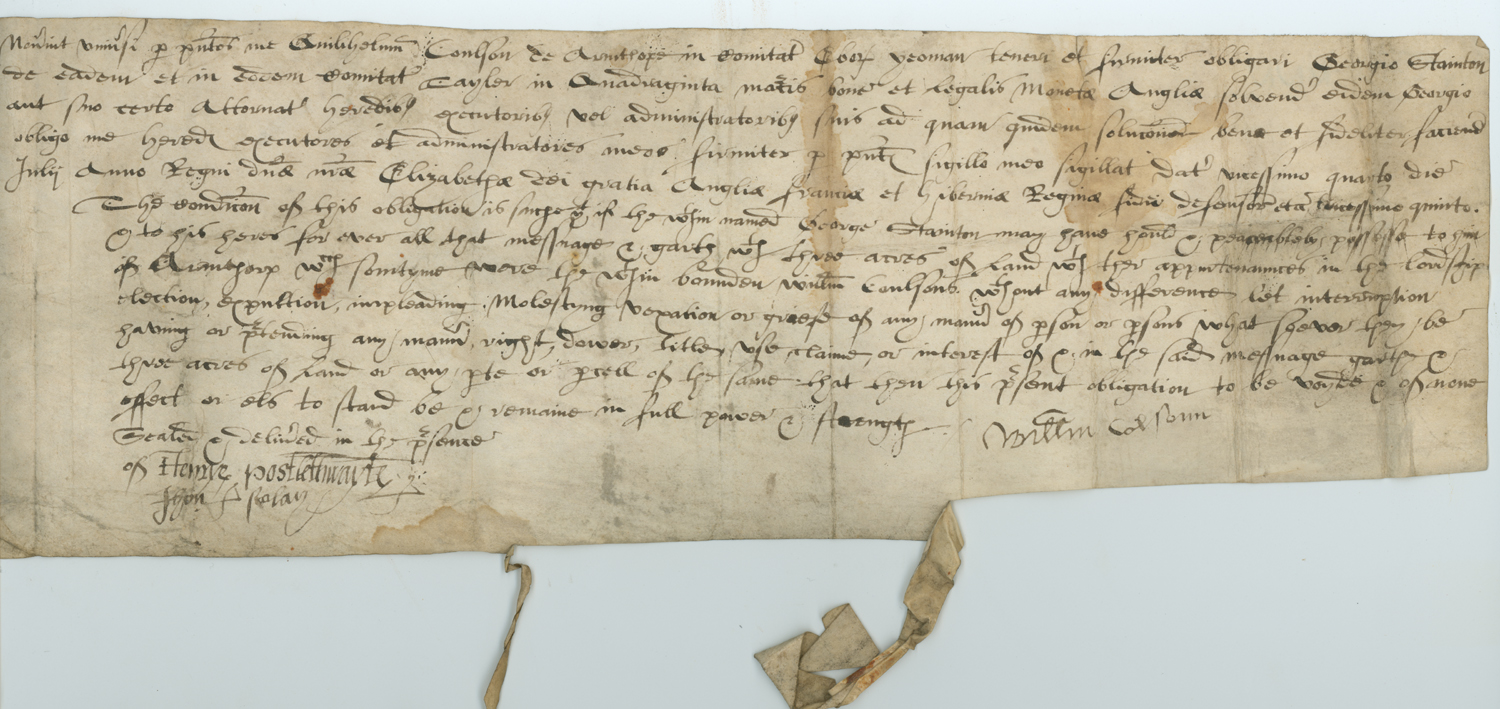 Nov̄int univ̄si p̱ pn̄tes me Guilihelmū Coulson de Armthope in Comitat' Eboꝝ yeoman teneri et firmiter obligari Georgio Stainton
de eadem et in eodem Comitat' Tayler in Quadraginta maͬcis bone et legalis Monetæ Angliæ solvend' eidem Georgio
aut suo certo Attornat' heredibȝ executoribȝ vel administratoribȝ suis ad quam quidem soluc̄onem bene et fideliter faciend'
obligo me hered' executores et administratores meos firmiter p̱ pn̄t sigillo meo sigillat dat' vicessimo quarto die
Julij Anno Regni dn̄æ nr̄æ Elizabethæ dei gratia Angliæ franciæ et hiberniæ Reginæ fidei defensor' etc̄ vicessimo quinto.
The condic̄on of this obligation is suche yͭ if the wͭʰin named George Stainton may have hould & peaceablely possesse to him
& to his heres for ever all that messuage & garth wͭʰ three acres of land wͭʰ ther appurtenaunces in the lordshipp
of Armthorp wᶜʰ somtyme were the wͭʰin bounden Willm̄ Coulsons wͭʰout any difference let interruption
election, expultion, impleading, Molesting vexation or greefe of any, mann' of p̱son or p̱sons what soever they, be
having or p'tending any, mann' right, dower, title, use, claime, or interest of & in the said messuage garth &
three acres of land or any, p̱te or p̱cell of the same that then this p'sent obligation to be voyde & of none
effect or els to stand be & remaine in full power & strength
Willm̄ Colsonn
Sealed & deliv̄ed in the p'sence
of Henrye Postlethwayte